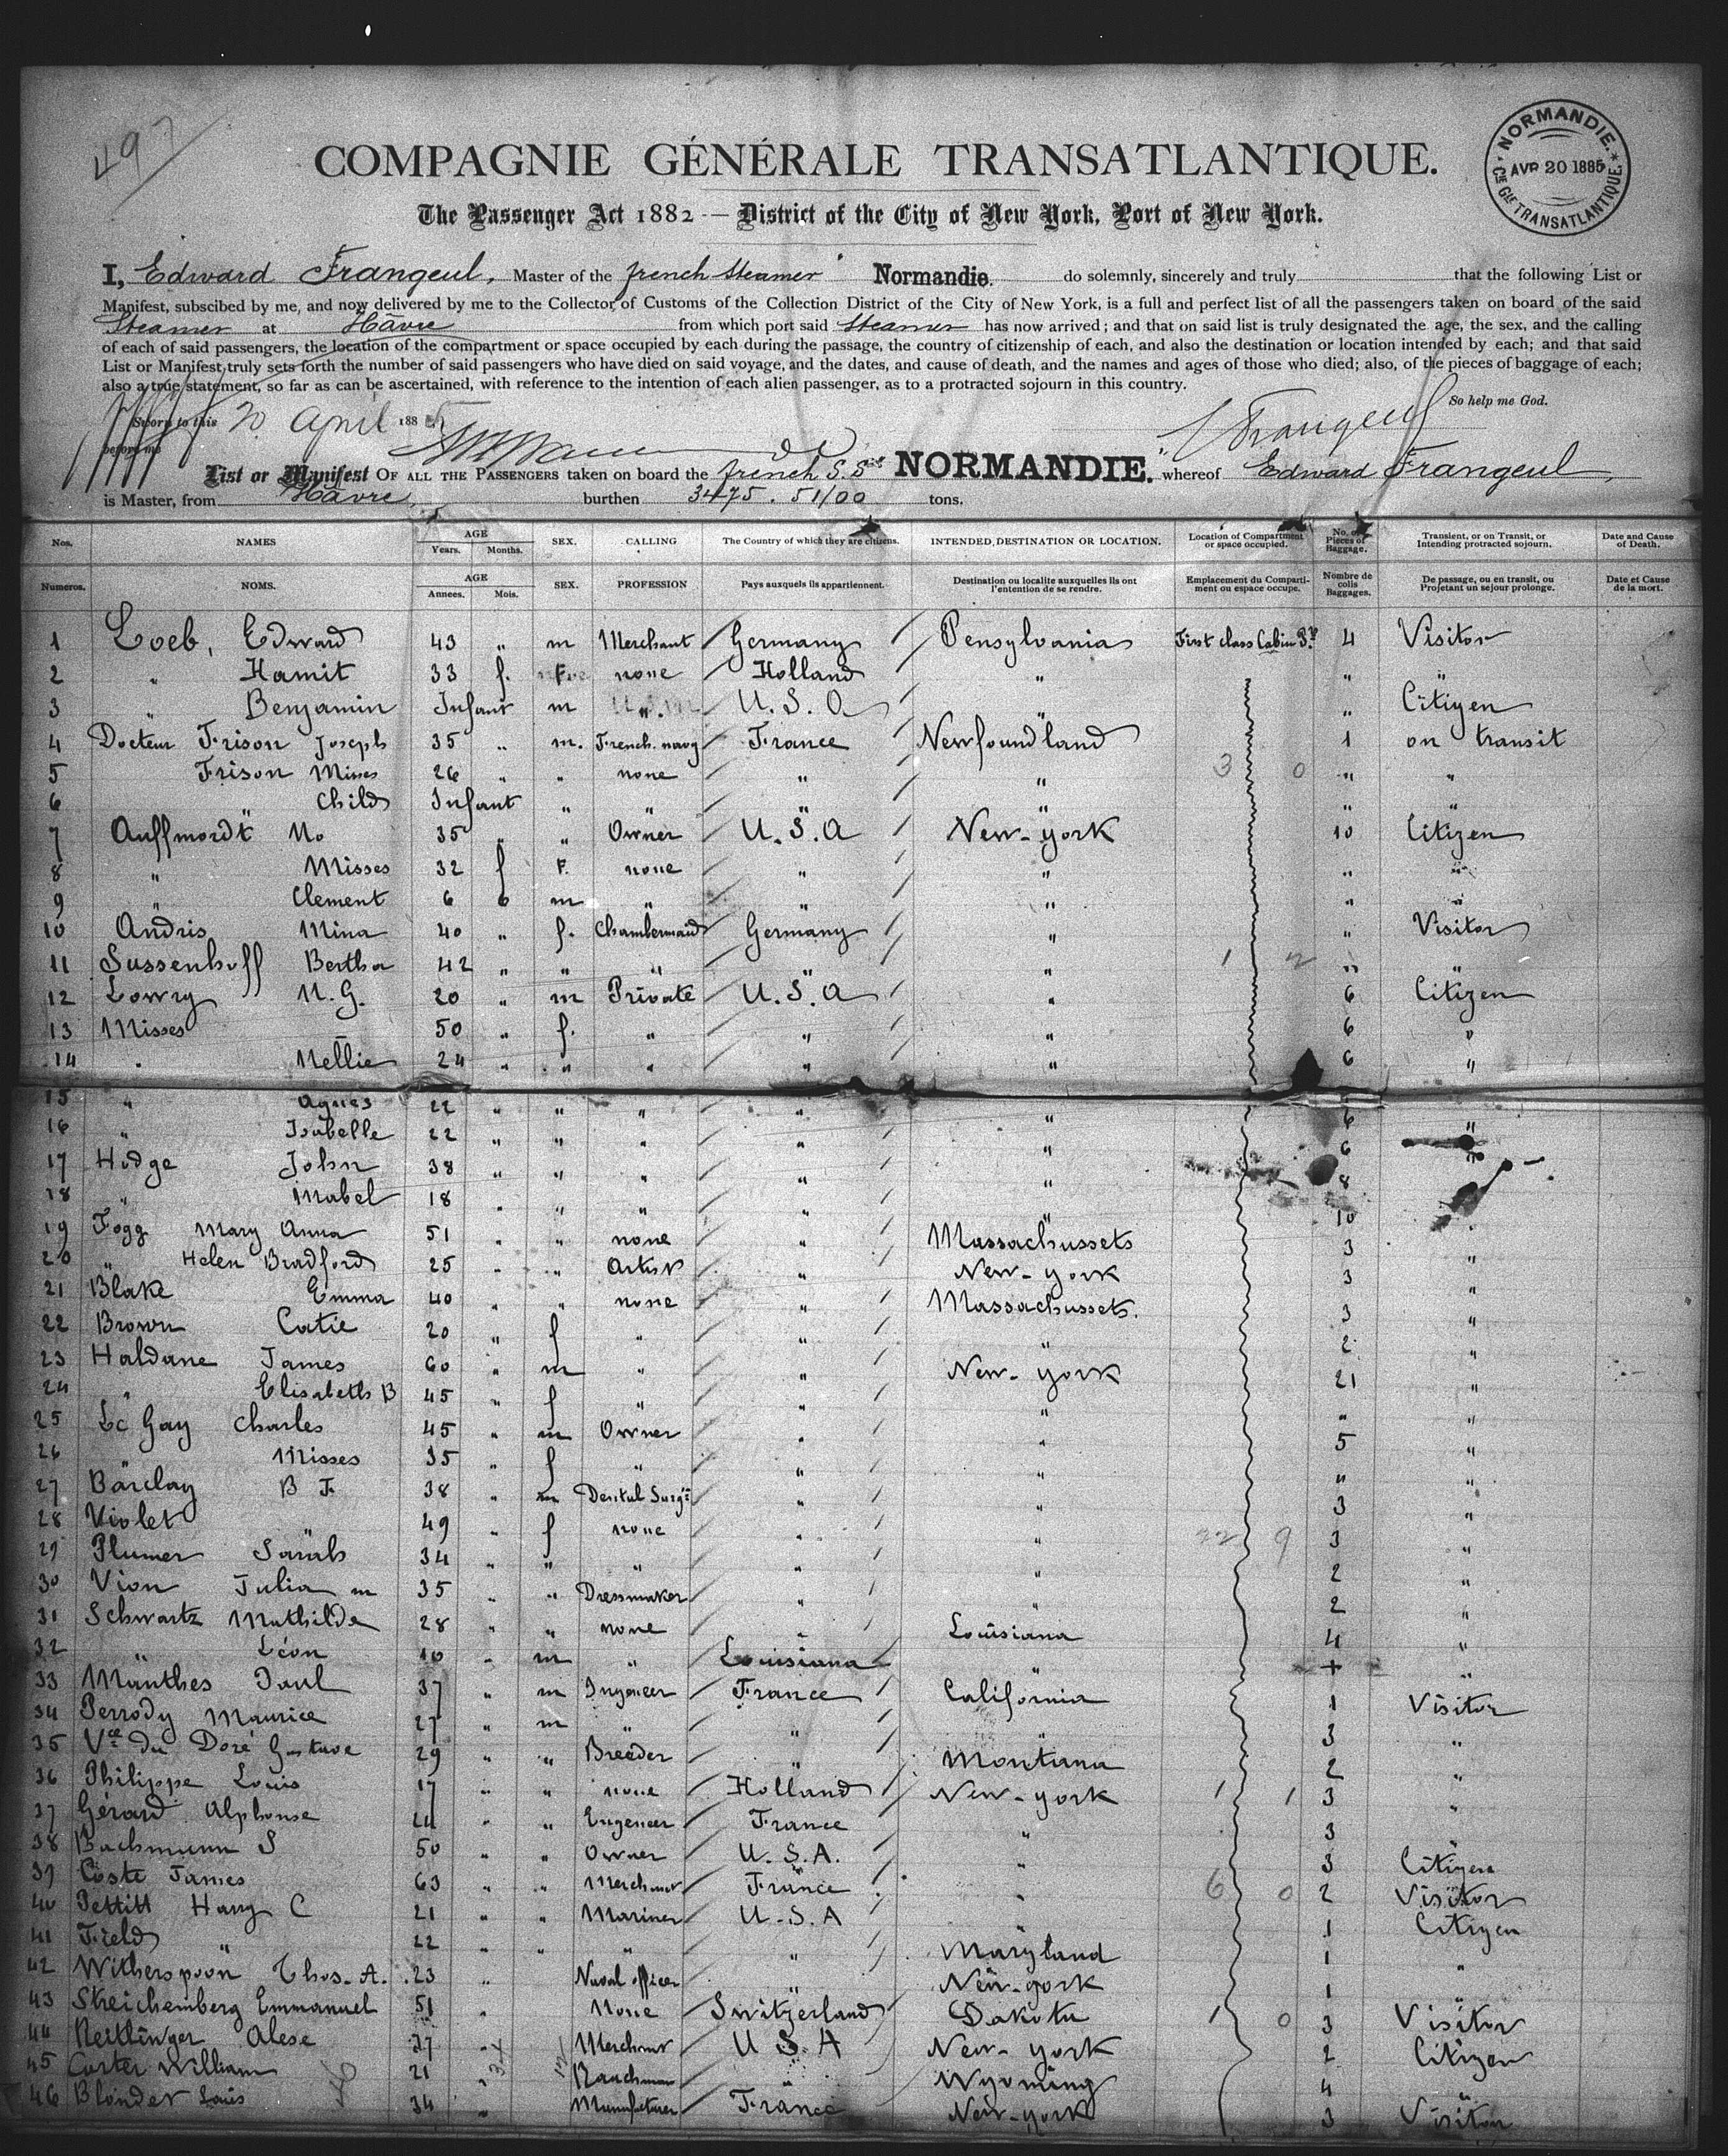 497
COMPAGNIE GÉNÉRALE TRANSATLANTIQUE.
NORMANDIE.
AVR 20 1885
CIE GLE TRANSATLANTIQUE
The Passenger Act 1882 — District of the City of New York, Port of New York.
I, Edward Frangeul, Master of the french Steamer Normandie. do solemnly, sincerely and truly that the following List or
Manifest, subscibed by me, and now delivered by me to the Collector of Customs of the Collection District of the City of New York, is a full and perfect list of all the passengers taken on board of the said
Steamer at Hâvre from which port said Steamer has now arrived; and that on said list is truly designated the age, the sex, and the calling
of each of said passengers, the location of the compartment or space occupied by each during the passage, the country of citizenship of each, and also the destination or location intended by each; and that said
List or Manifest truly sets forth the number of said passengers who have died on said voyage, and the dates, and cause of death, and the names and ages of those who died; also, of the pieces of baggage of each;
also a true statement, so far as can be ascertained, with reference to the intention of each alien passenger, as to a protracted sojourn in this country.
So help me God.
Sworn to this 20 April 1885
before me
E Frangeul
List or Manifest OF ALL THE PASSENGERS taken on board the french S.S. "NORMANDIE." whereof Edward Frangeul,
is Master, from Hâvre, burthen 3475. 51/00 tons.
Nos. NAMES AGE Years. Months. SEX. CALLING The Country of which they are citizens. INTENDED DESTINATION OR LOCATION. Location of Compartment or space occupied. No. of Pieces of Baggage. Transient, or on Transit, or Intending protracted sojourn. Date and Cause of Death.
Numeros. NOMS. AGE Annees. Mois. SEX. PROFESSION Pays auxquels ils appartiennent. Destination ou localite auxquelles ils ont l'entention de se rendre. Emplacement du Compartiment ou espace occupe. Nombre de colis Baggages. De passage, ou en transit, ou Projetant un sejour prolonge. Date et Cause de la mort.
1 Loeb, Edward 43 " m Merchant Germany Pensylvania First class Cabin 4 Visitor
2 " Hamit 33 f. F none Holland " " "
3 " Benjamin Infant m " U.S.A " " Citizen
4 Docteur Frison Joseph 35 " m. French navy France Newfoundland 1 on transit
5 Frison Misses 26 " " none " " 3 0 " "
6 " Child Infant " " " " " "
7 Auffmordt No 35 " " Owner U.S.A New-york 10 Citizen
8 " Misses 32 f F. none " " " "
9 " Clement 6 6 m " " " " "
10 Andris Mina 40 " f. Chambermaid Germany " " Visitor
11 Sussenhoff Bertha 42 " " " " " 1 2 " "
12 Lowry N.G. 20 " m Private U.S.A " 6 Citizen
13 Misses 50 " f. " " " 6 "
14 " Nellie 24 " " " " " 6 "
15 " Agnes 22 " " " " " 6 "
16 " Isabelle 22 " " " " " 6 "
17 Hodge John 38 " " " " " 8 "
18 " Mabel 18 " " " " " 10 "
19 Fogg Mary Anna 51 " " none " Massachussets 3 "
20 " Helen Bradford 25 " " Artist " New-york 3 "
21 Blake Emma 40 " " none " Massachussets. 3 "
22 Brown Catie 20 " f " " " 2 "
23 Haldane James 60 " m " " New-york 21 "
24 " Elisabeth B 45 " f " " " " "
25 Le Gay Charles 45 " m Owner " " 5 "
26 " Misses 35 " f " " " " "
27 Barclay B F. 38 " m Dental Surgn " " 3 "
28 Violet 49 " f none " " 22 9 3 "
29 Plumer Sarah 34 " " " " " 2 "
30 Vion Julia m 35 " " Dressmaker " " 2 "
31 Schwartz Mathilde 28 " " none " Louisiana 4 "
32 " Léon 10 " m " Louisiana " + "
33 Manthes Paul 37 " m Ingeneer France California 1 Visitor
34 Perrody Maurice 27 " m " " " 3 "
35 Vce du Doré Gustave 29 " " Breeder " Montana 2 "
36 Philippe Louis 17 " " none Holland New-york 1 1 3 "
37 Gérard Alphonse " " Engeneer France " 3 "
38 Bachmann S 50 " " Owner U.S.A. " 3 Citizen
39 Coste James 63 " " Merchant France " 6 0 2 Visitor
40 Pettitt Harry C 21 " " Mariner U.S.A " 1 Citizen
41 Field " 22 " " " " Maryland 1 "
42 Witherspoon Thos. A. 23 " Naval officer " New-york 1 "
43 Streichemberg Emmanuel 51 " None Switzerland Dakota 1 0 3 Visitor
44 Neitlinger Alese 27 " Merchant U S A New-york 2 Citizen
45 Carter William 21 " Ranchman " Wyoming 4 "
46 Blondet Louis 34 " Manufacturer France New-york 3 Visitor